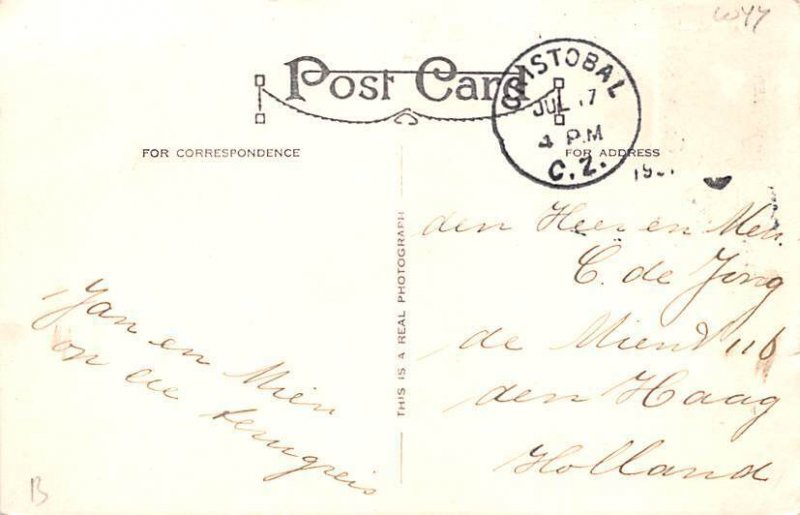 Post Card
CRISTOBAL
JUL 17
4 PM
C.Z.
FOR CORRESPONDENCE
FOR ADDRESS
THIS IS A REAL PHOTOGRAPH
Jan en Mien
op de terugreis
den Heer en Mev.
C. de Jong
de 116
den Haag
Holland
B